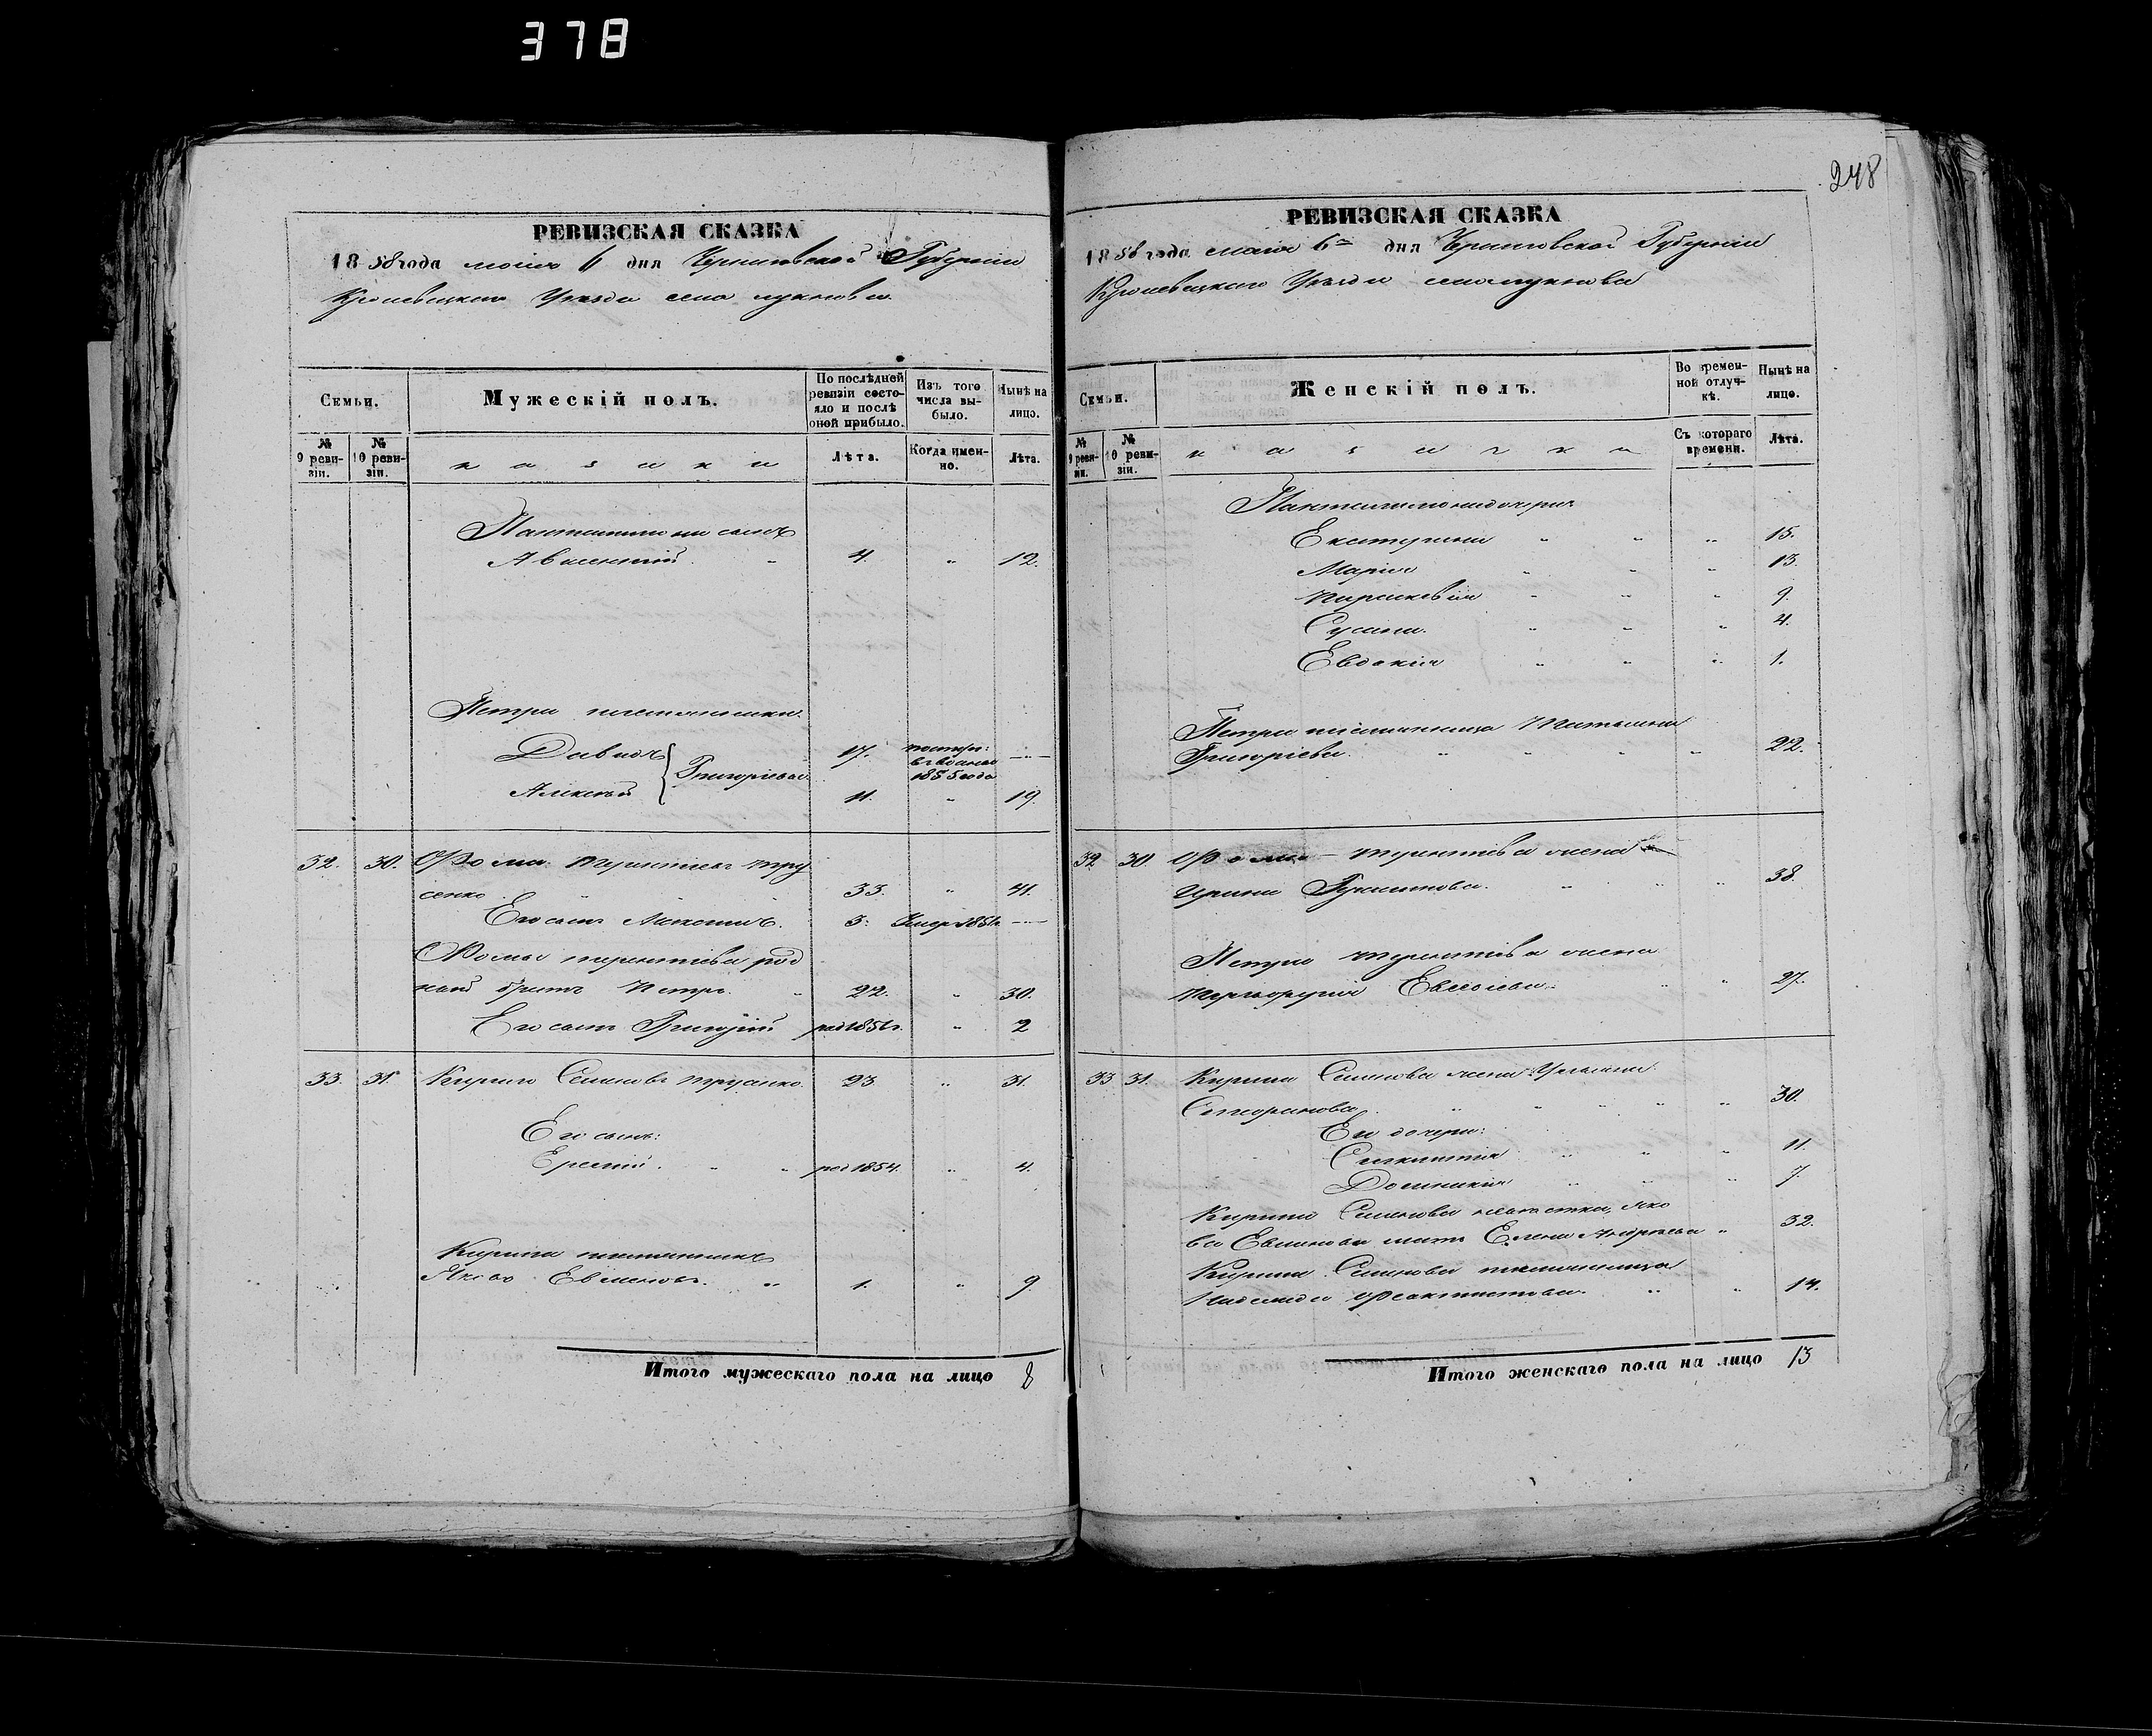 378
248
РЕВИЗСКАЯ СКАЗКА
1858 года мая 6 дня Черниговской Губернии
Кролевецкого Уезда села
Семьи.
Мужескій полъ.
По послѣдней ревизіи состояло и послѣ оной прибыло.
Изъ того числа выбыло.
Нынѣ на лицо.
№ 9 ревизіи.
№ 10 ревизіи.
казаки
Лѣта.
Когда именно.
Лѣта.
Пантелимона сынъ
Авксентий 4. " 12.
Петра племянники
Давидъ } Григорьевы 17. 1855 года —"—
Алексей 11. " 19.
32. 30. Фома Терентіевъ Тру
сенко 33. " 41.
Его сынъ 3. Умер 1851г. —"—
Фомы Терентіева род
ной братъ Петръ 22. " 30.
Его сынъ Григорій род 1856г. " 2
33. 31. Кирило Семеновъ Трусенко 23 " 31.
Его сынъ:
род 1854. " 4.
Кирила племянникъ
Яковъ Евменовъ. " 1. " 9.
Итого мужескаго пола на лицо 8
РЕВИЗСКАЯ СКАЗКА
1858 года мая 6го дня Черниговской Губернии
Кролевецкого Уезда села
Семьи.
Женскій полъ.
Во временной отлучкѣ.
Нынѣ на лицо.
№ 9 ревизіи.
№ 10 ревизіи.
казачки
Съ котораго времени.
Лѣта.
Пантелимона дочери
Екатерина " " " 15.
Марія " " " 13.
Параскевія " " " 9.
Сусана. " " " 4.
Евдокія " " " 1.
Петра племянница Татьяна
Григоріева. " " " " 22.
32 30. Фомы Терентіева жена
Ирина " " " 38.
Петра Терентіева жена
Евсеіева " " 27.
33 31. Кирила Семенова жена Ульяна
" " " " " 30.
Его дочери:
" " " 11.
Домникия " " " 7.
Кирила Семенова невестка, Яко
ва Евменова мать Елена Андреева " 32.
Кирила Семенова племянница
" " 14.
Итого женскаго пола на лицо 13